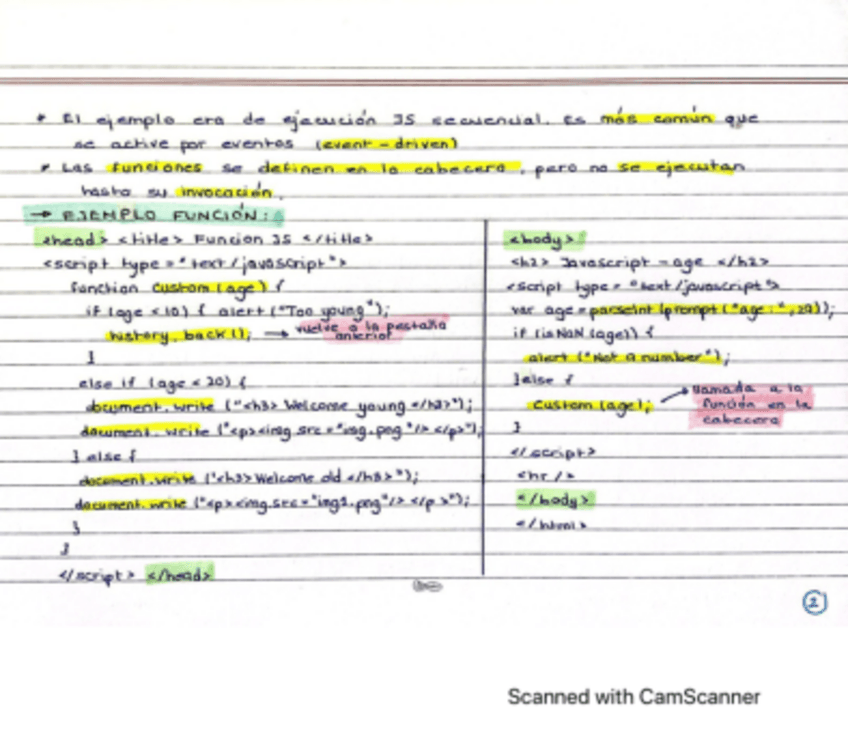 * El ejemplo era de ejecución JS secuencial. Es más común que
se active por eventos (event-driven)
* Las funciones se definen en la cabecera, pero no se ejecutan
hasta su invocación.
→ EJEMPLO FUNCIÓN:
<head> <title> Funcion JS </title>
<script type="text/javascript">
function custom(age) {
if (age < 10) { alert ("Too young");
history.back(); → vuelve a la pestaña
anterior
}
else if (age < 30) {
document.write ("<h3> Welcome young </h3>");
document.write ("<p><img src="img.png"/> </p>");
} else {
document.write ("<h3> Welcome old </h3>");
document.write ("<p><img.src="img1.png"/> </p>");
}
}
</script> </head>
<body>
<h2> Javascript - age </h2>
<script type="text/javascript">
var age = parseInt (prompt ("age:", 20));
if (isNaN (age)) {
alert ("Not a number");
}else {
custom (age); → llamada a la
función en la
cabecera
}
</script>
<hr />
</body>
</html>
2
Scanned with CamScanner